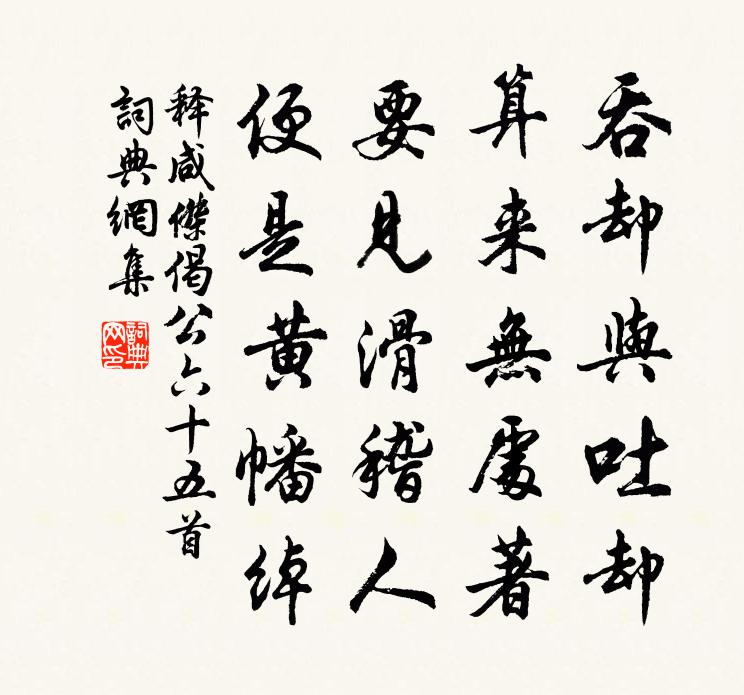 吞却與吐却
算来無處著
要見滑稽人
便是黄幡绰
释咸傑偈公六十五首
詞典網集
詞典網印